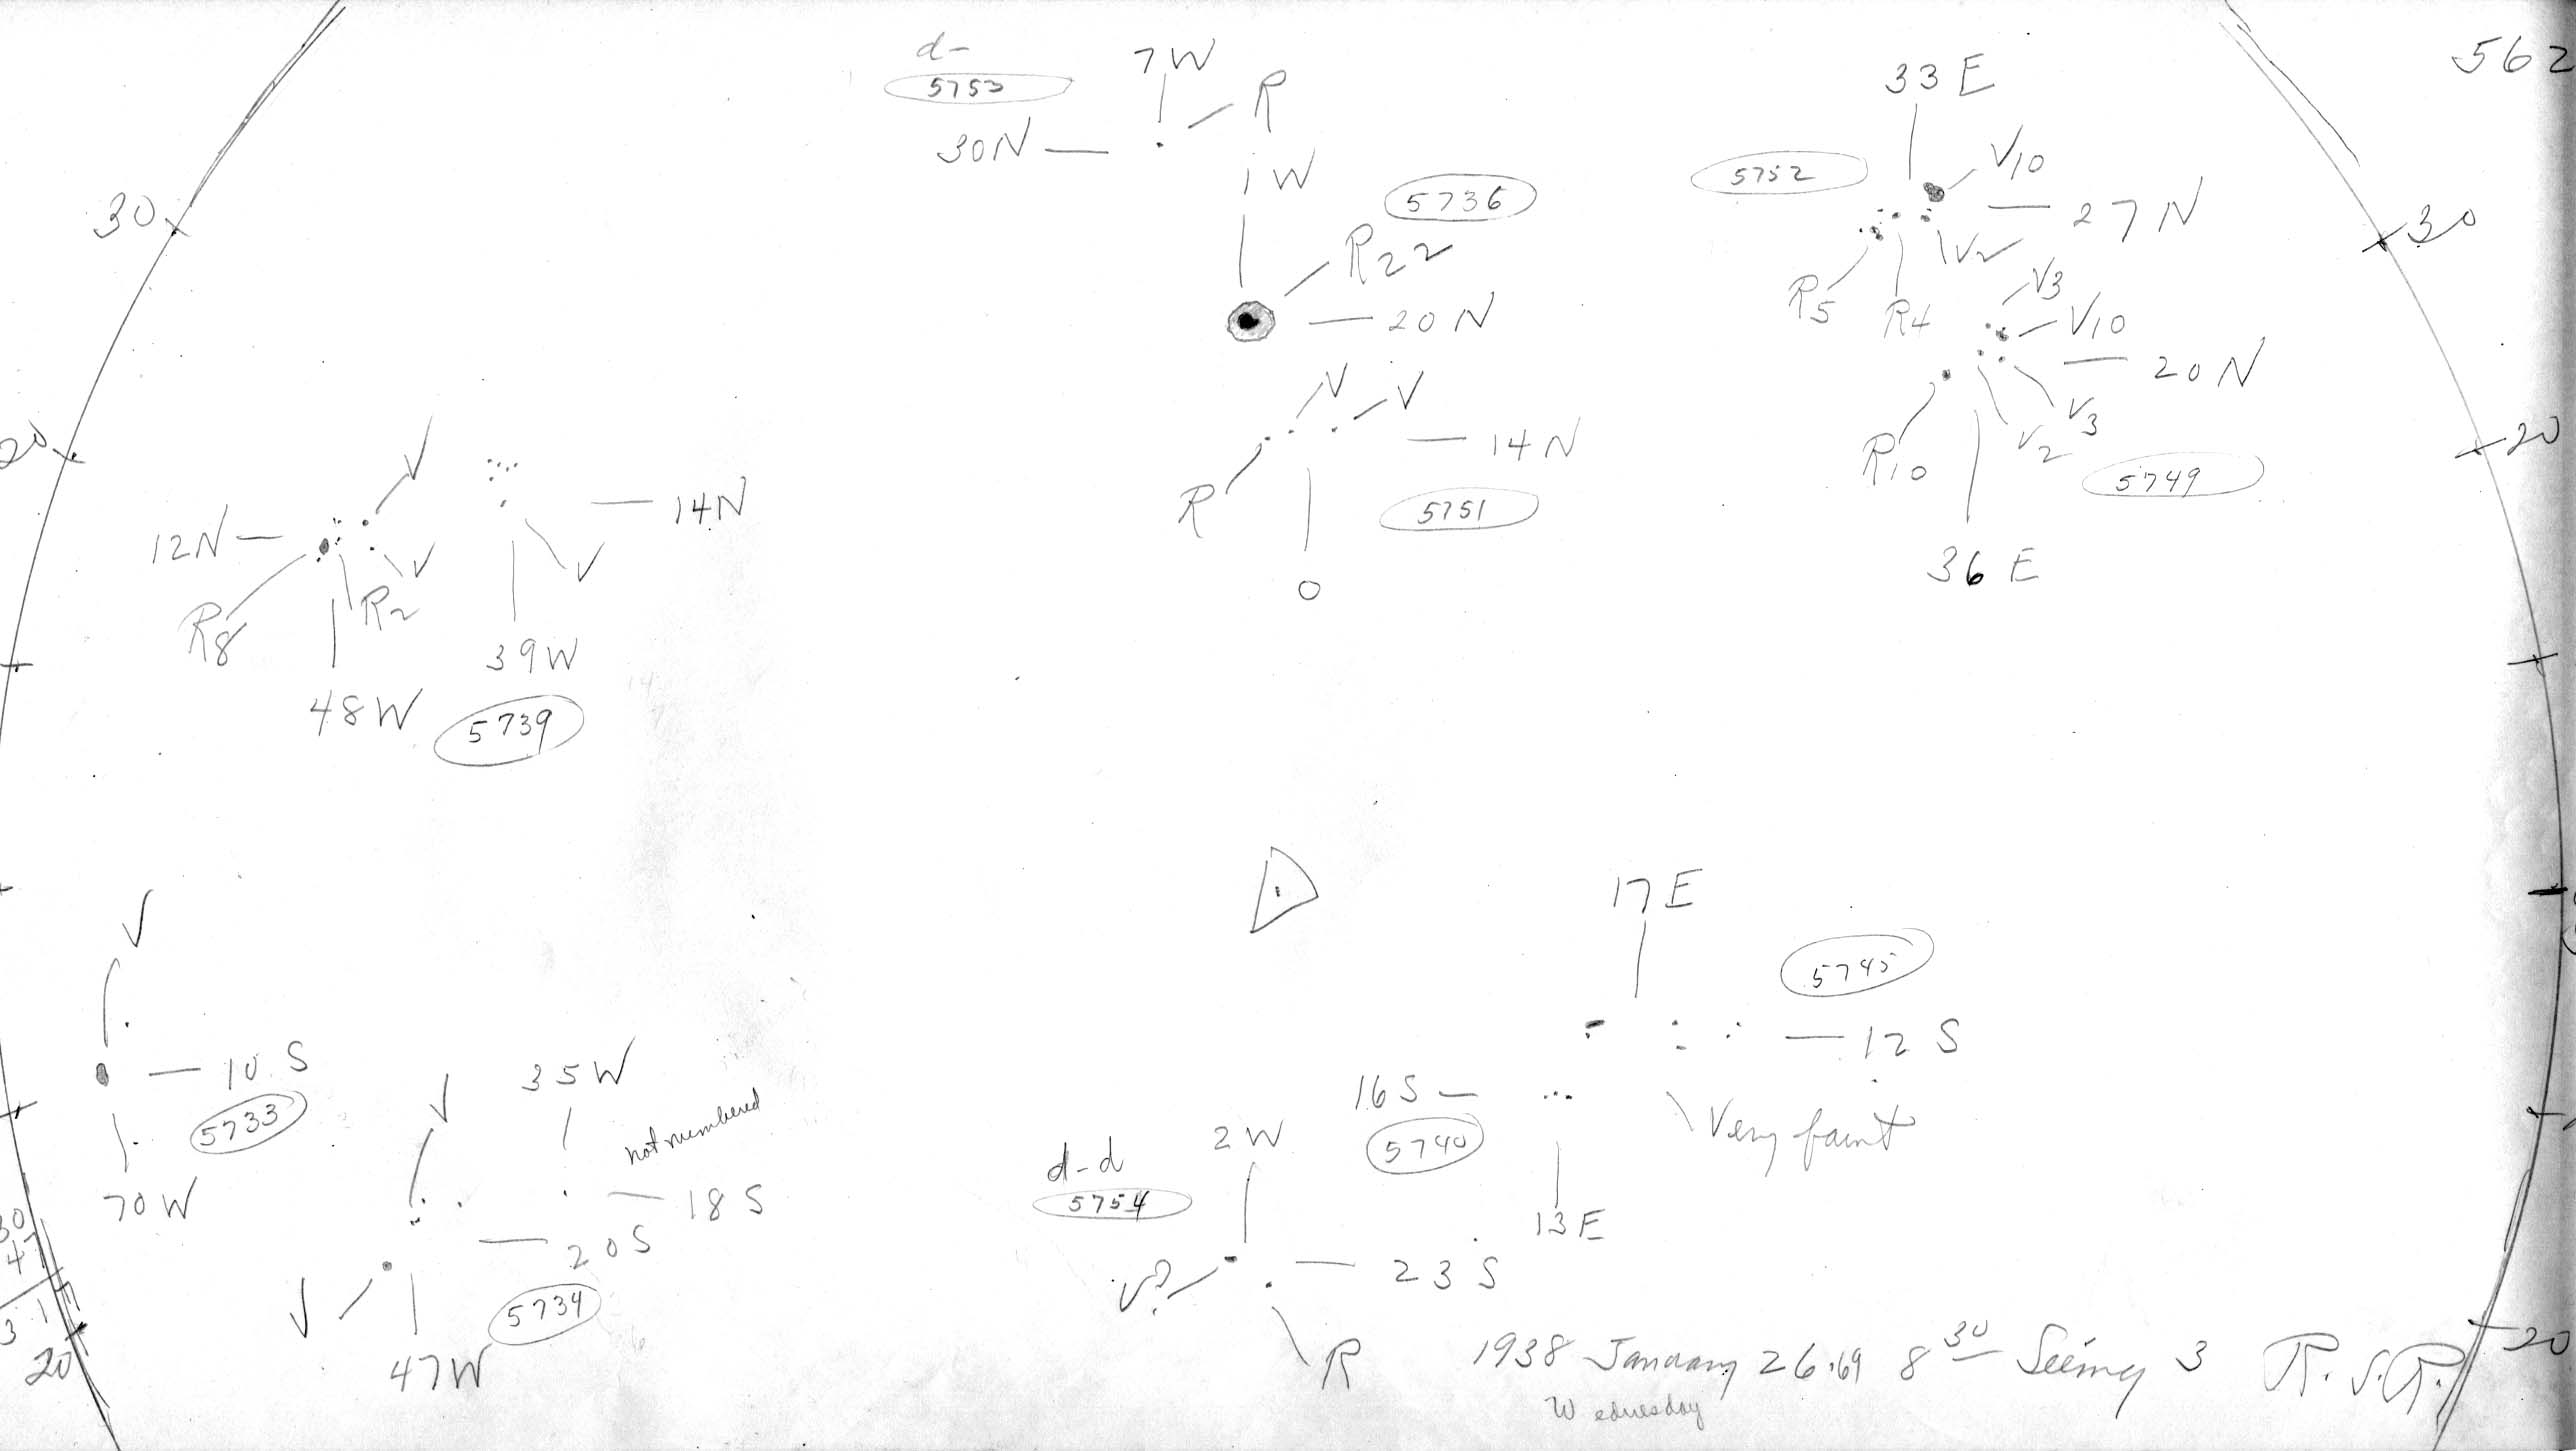 562
d-
5753
7W
R
30N
1W
5736
R22
20N
V
V
14N
R
5751
0
33E
5752
V10
27N
V2
R5
R4
V3
V10
20N
V3
V2
R10
5749
36E
30
30
20
20
V
14N
12N
V
V
R8
R2
39W
48W
5739
V
10 S
5733
70W
V
35W
not numbered
18 S
20S
V
5734
47W
17E
5745
12 S
Very faint
16S
5740
13E
2W
d-d
5754
V?
23 S
R
30
20
20
1938 January 26.69 8 30 Seeing 3 R.S.R.
Wednesday